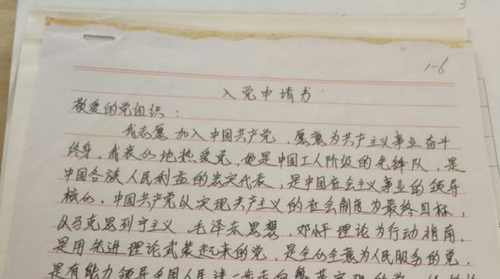 3
1-6
入党申请书
敬爱的党组织：
我志愿加入中国共产党，愿意为共产主义事业奋斗
终身，我衷心地热爱党，她是中国工人阶级的先锋队，是
中国各族人民利益的忠实代表，是中国社会主义事业的领导
核心。中国共产党以实现共产主义的社会制度为最终目标，
以马克思列宁主义、毛泽东思想、邓小平理论为行动指南，
是用先进理论武装起来的党，是全心全意为人民服务的党，
是有能力领导全国人民进一步走向繁荣